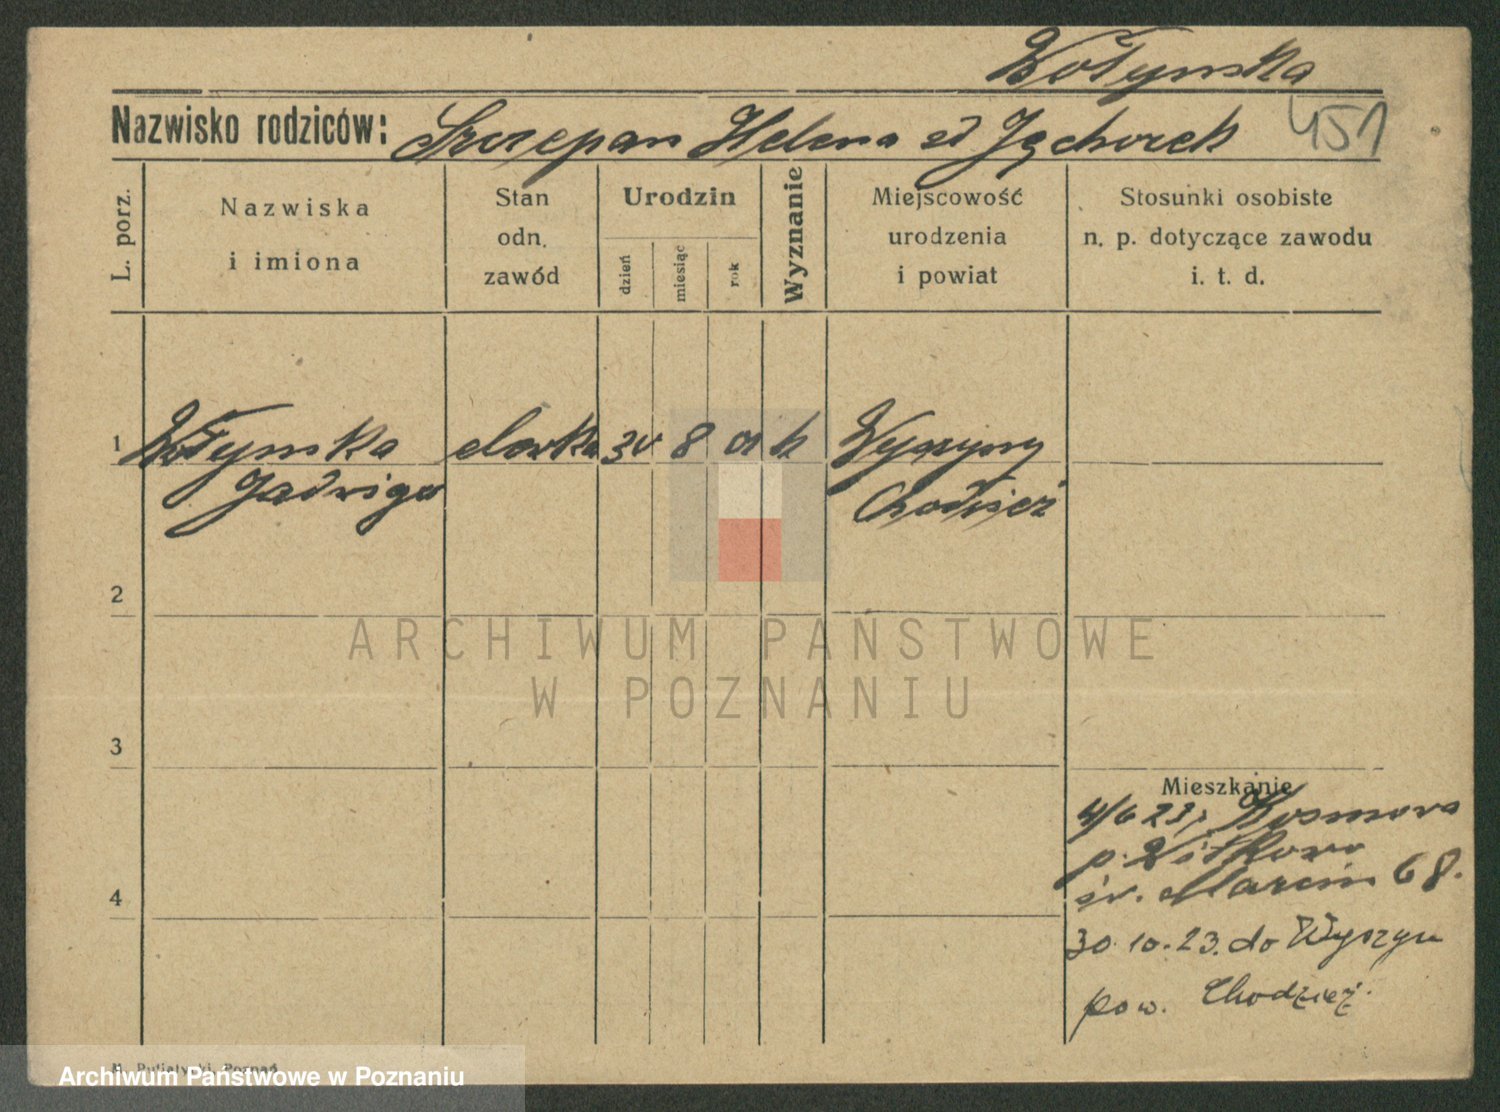 Wołynska
Nazwisko rodziców: Szczepan Helena zd Jęchorek
451
L. porz.
Nazwiska
i imiona
Stan
odn.
zawód
Urodzin
dzień
miesiąc
rok
Wyznanie
Miejscowość
urodzenia
i powiat
Stosunki osobiste
n. p. dotyczące zawodu
i. t. d.
1 Wołynska 30 8 01 k Wyszyny
Jadwiga Chodzież
2
ARCHIWUM PAŃSTWOWE
W POZNANIU
3
Mieszkanie
4/6 23, Kosmowo
p. Witkowo
4 św. Marcin 68.
30.10.23. do Wyszyn
pow. Chodzież.
Poznań
Archiwum Państwowe w Poznaniu